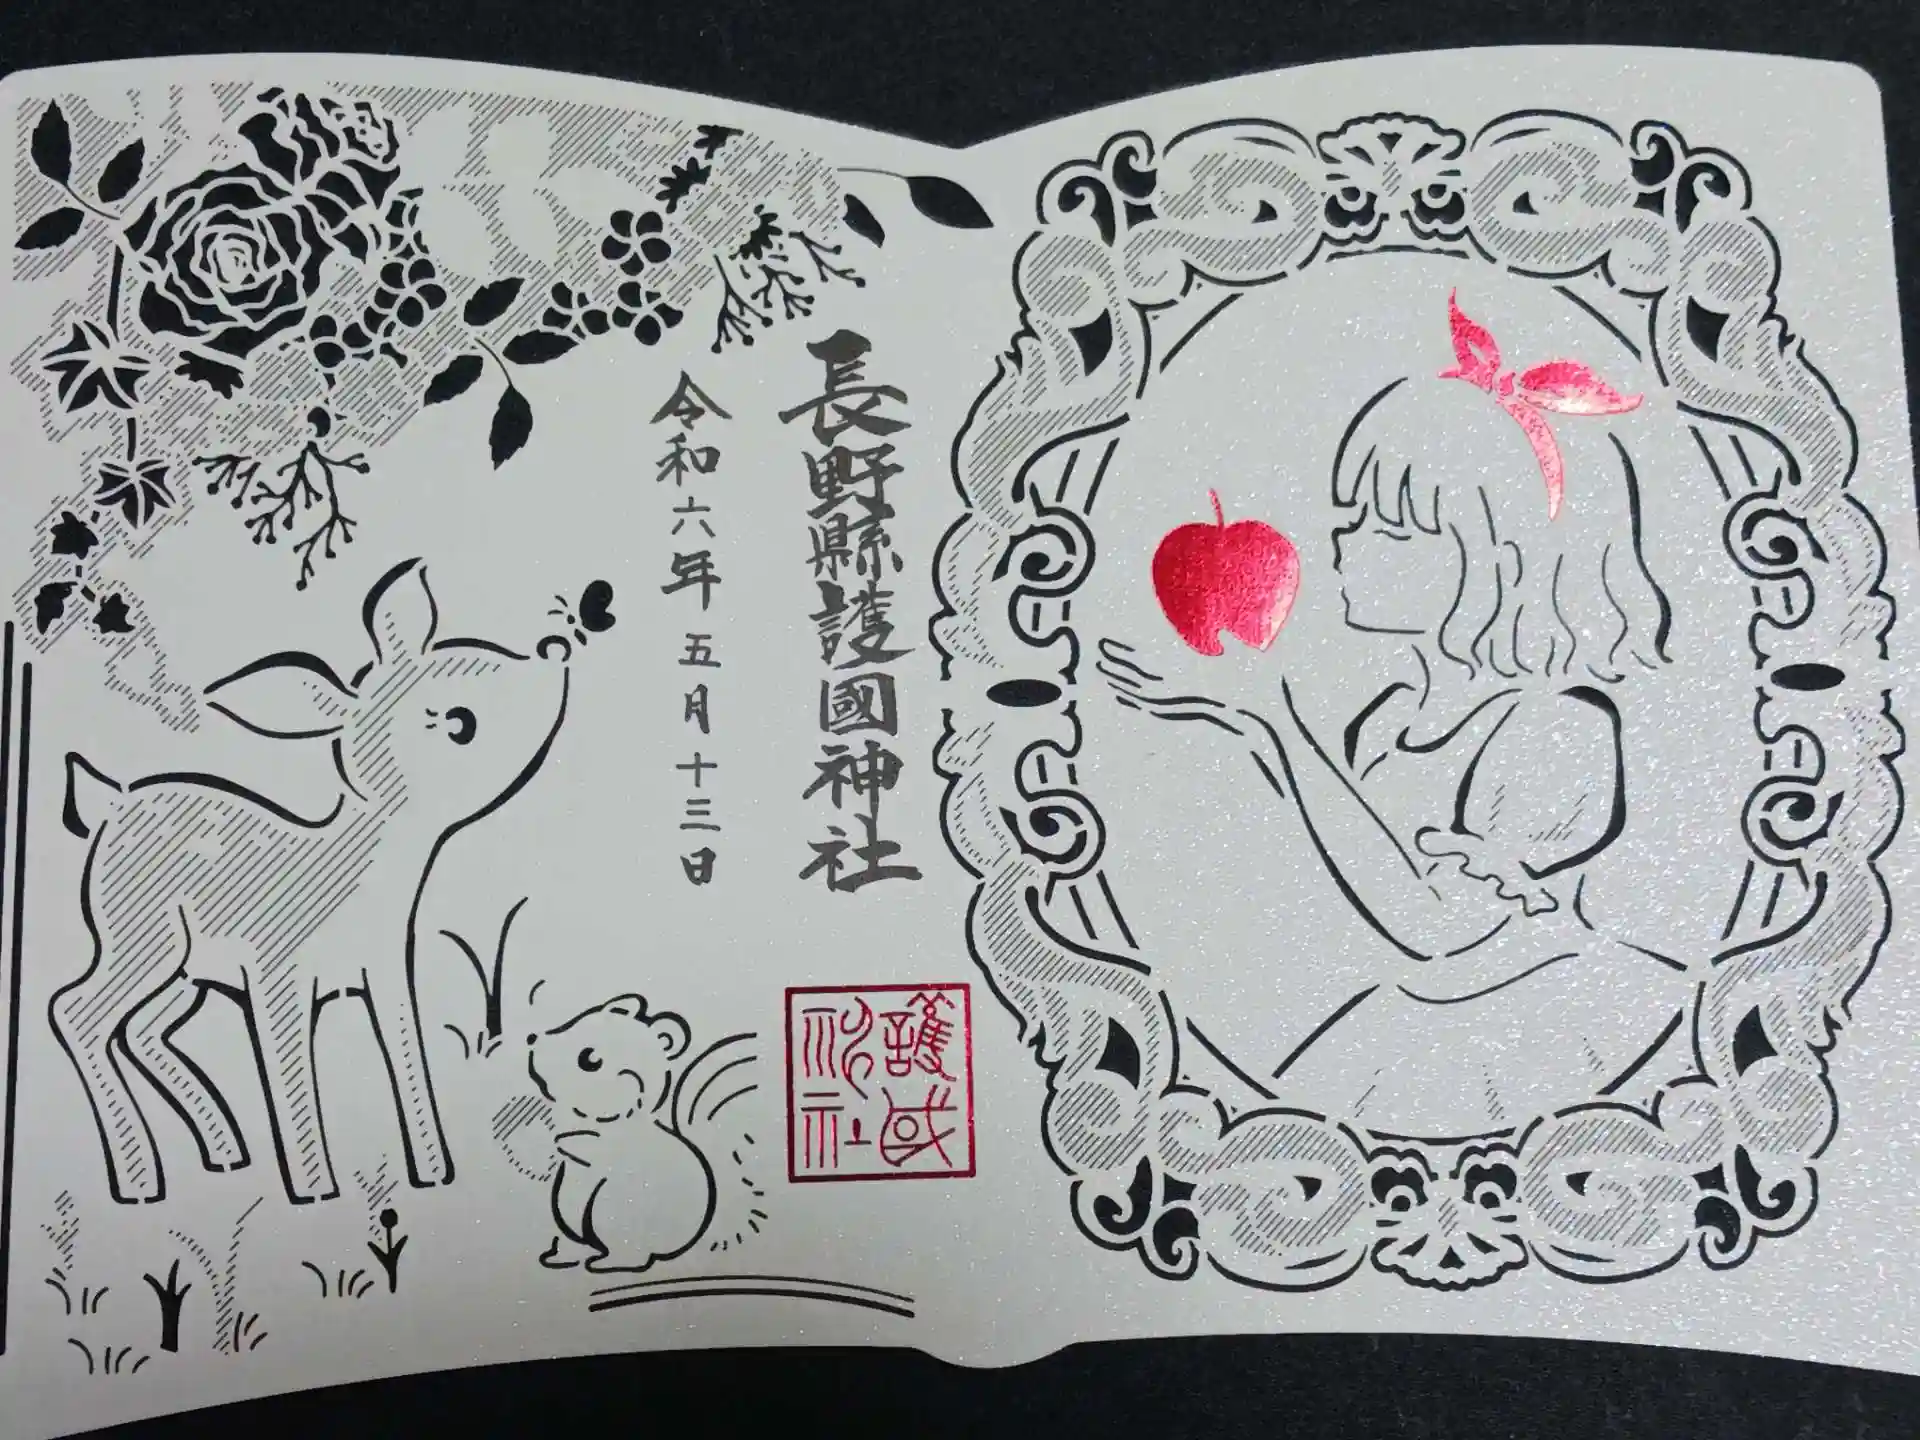 長野縣護國神社
令和六年五月十三日
護国
神社